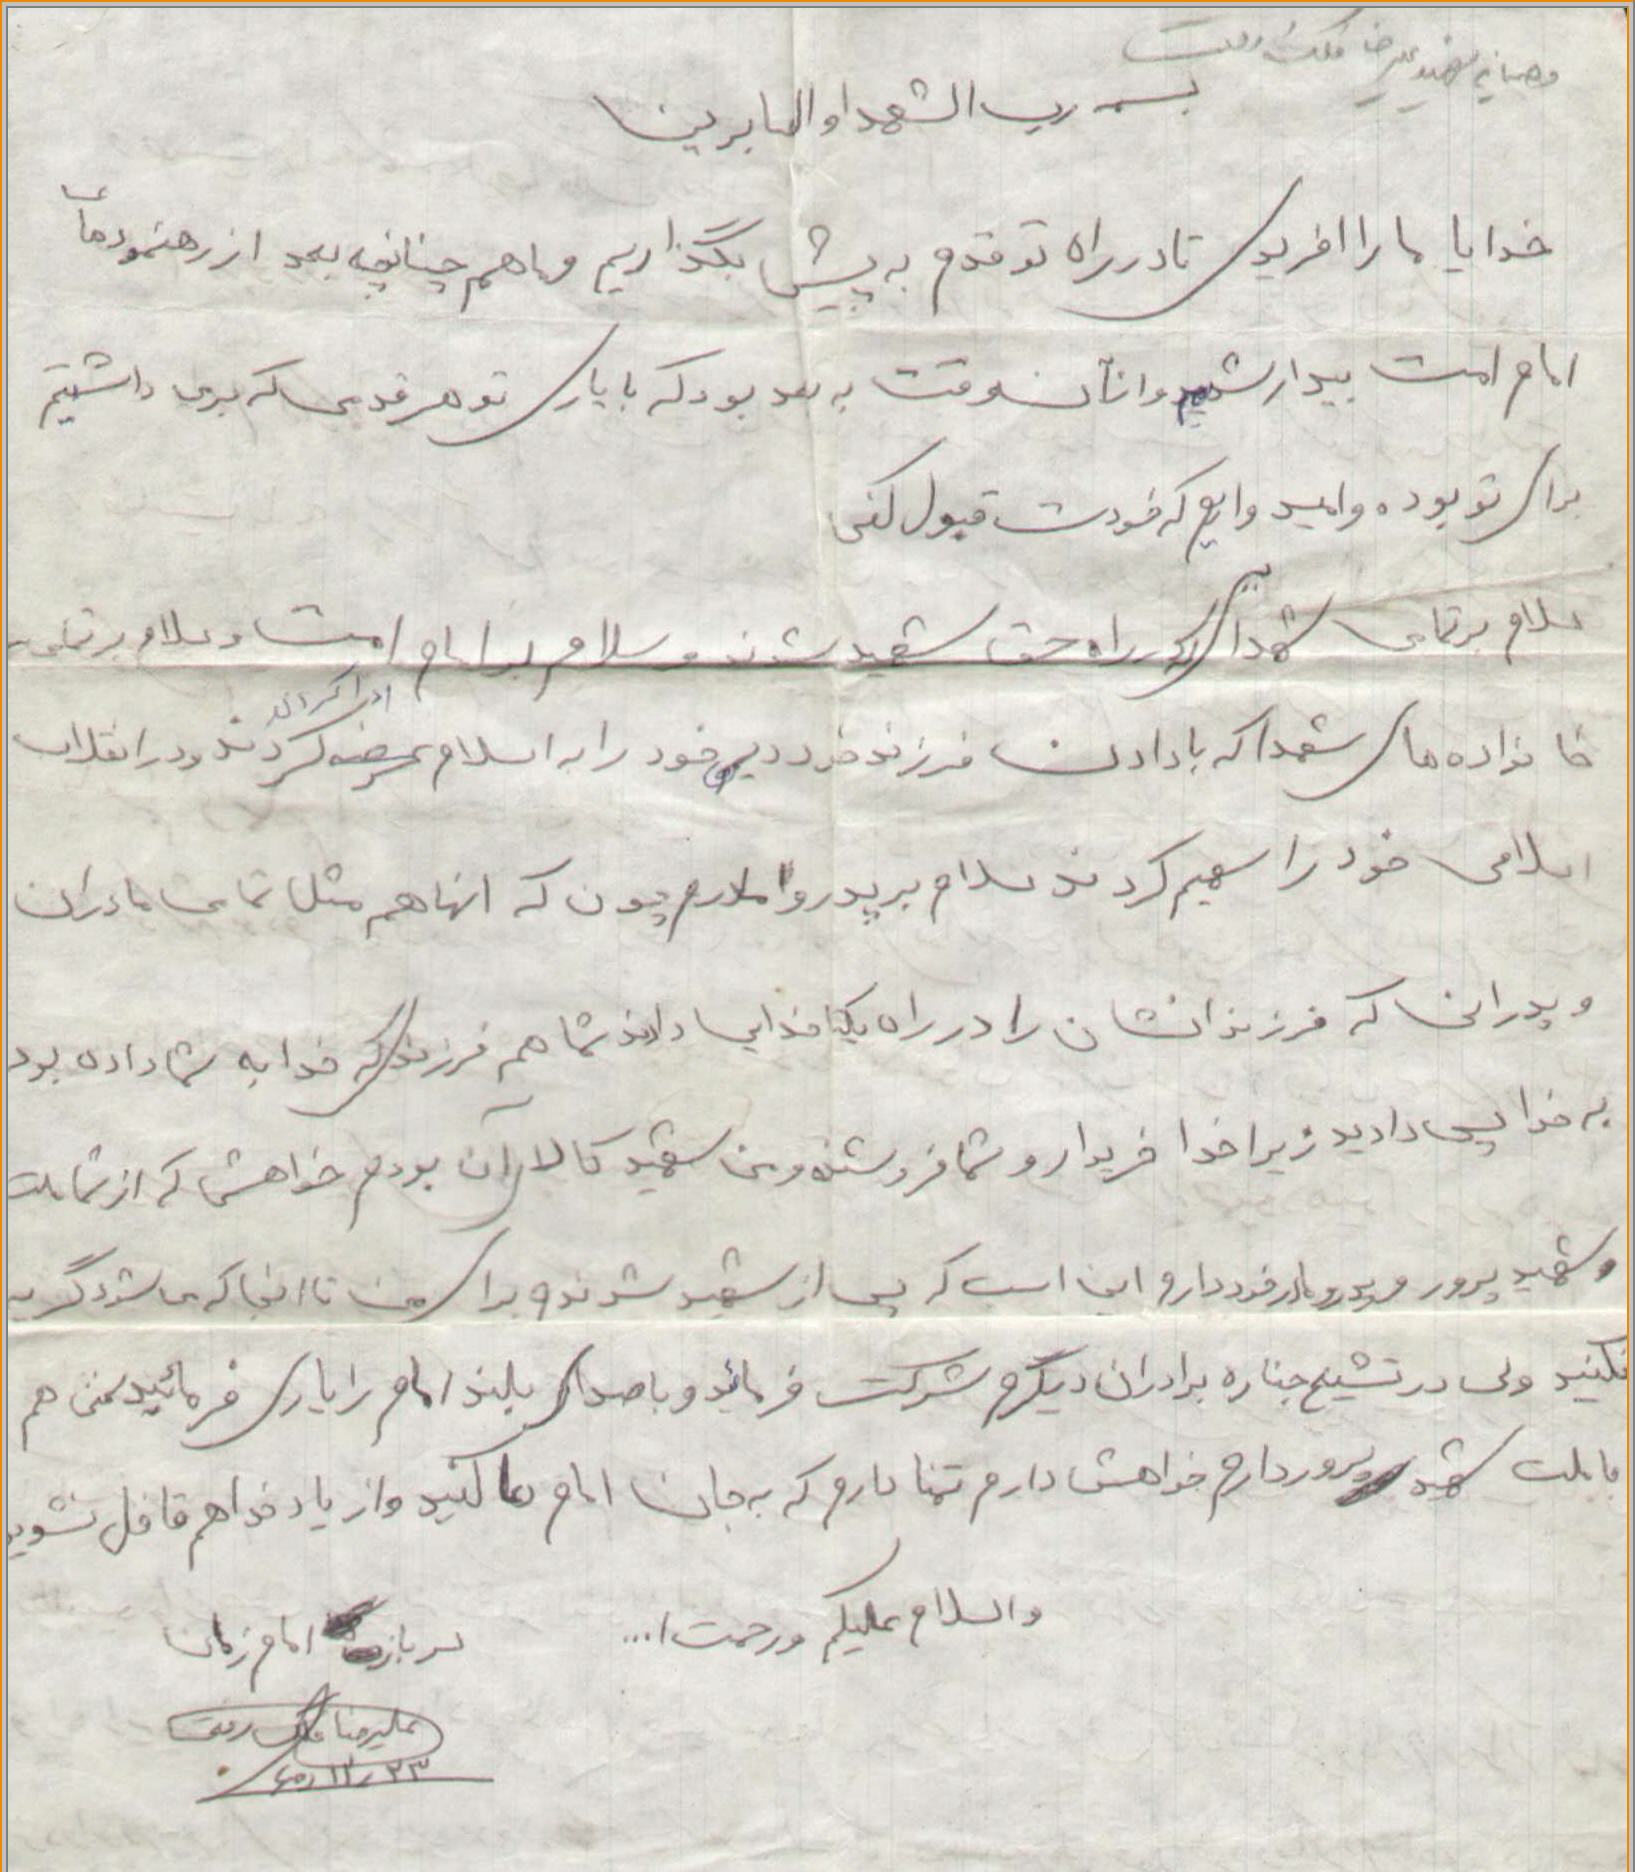 وصیتنامه شهید علیرضا ملک رفعت
بسمه رب الشهدا و الصابرین
خدایا ما را افریدی تا در راه تو قدم به پیش بگذاریم و ما هم چنانچه بعد از رهنمودهای
امام امت بیدار شدیم و از آن وقت به بعد بود که با یاری تو هر قدمی که برمی داشتیم
برای تو بوده و امید واریم که خودت قبول کنی
سلام بر تمامی شهدای که در راه حق شهید شدند و سلام بر امام امت و سلام بر تمامی
خانواده های شهدا که با دادن فرزند خود دین خود را به اسلام ادا کردند و در انقلاب
اسلامی خود را سهیم کردند سلام بر پدر و مادرم چون که انها هم مثل تمامی مادران
و پدرانی که فرزندانشان را در راه یکتا خدایی دادند شما هم فرزندی که خدا به شما داده بود
به خدا پس دادید زیرا خدا خریدار و شما فروشنده و من شهید کالای آن بودم خواهشی که از شما ملت
شهید پرور و پدر و مادر خود دارم این است که پس از شهید شدنم برای من تا انجا که می شود گریه
نکنید ولی در تشییع جنازه برادران دیگرم شرکت فرمائید و با صدای بلند امام را یاری فرمائید منی هم
با ملت شهید پرور دارم خواهش دارم تمنا دارم که به جان امام دعا کنید و از یاد خدا هم قافل نشوید
والسلام علیکم و رحمت ا...
سرباز امام زمان
علیرضا ملک رفعت